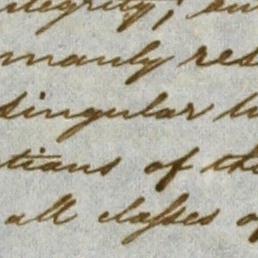 ntegrity; bu
manly res
singular
tians of th
all classes of